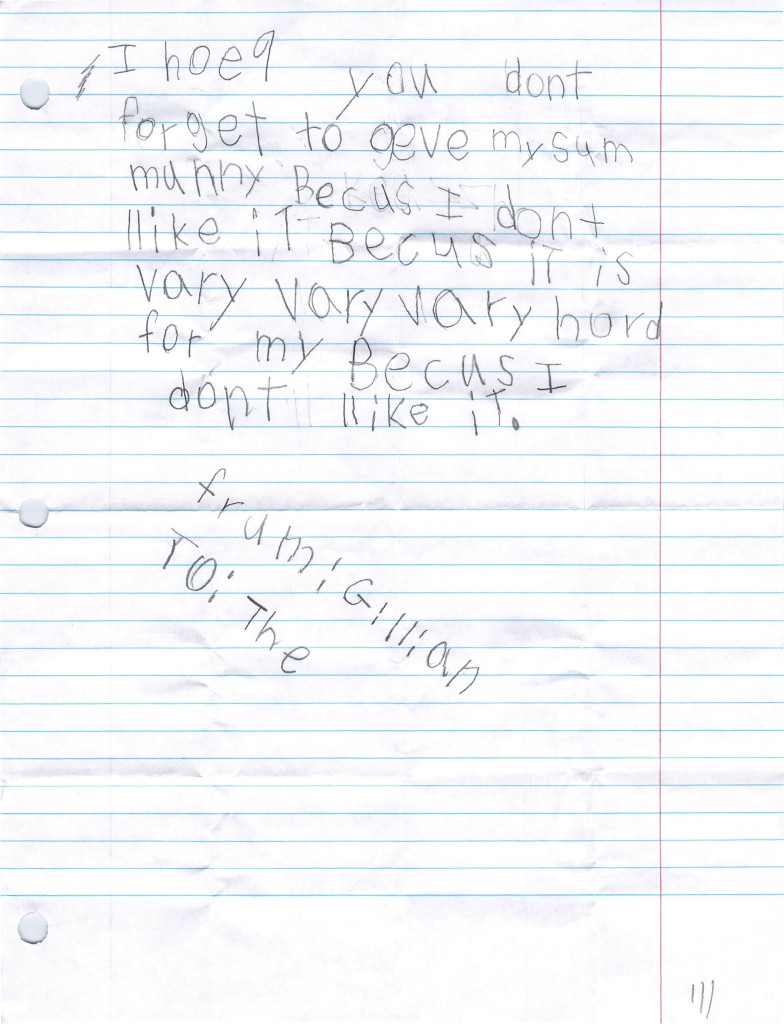 I hoep you dont
forget to geve my sum
munny Becus I dont
llike iT Becus iT is
vary vary vary hord
for my Becus I
dont llike iT.
frum: Gillian
TO: The